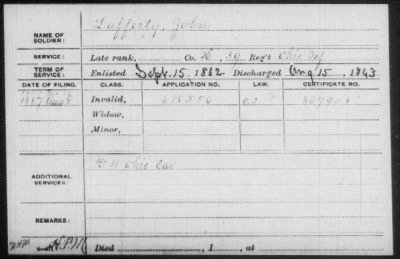 NAME OF SOLDIER: Lafferty, John
SERVICE: Late rank, Co. K, 59 Reg't Ohio Inf
TERM OF SERVICE: Enlisted Sept. 15, 1862 Discharged Aug 15, 1863
DATE OF FILING. CLASS. APPLICATION NO. LAW. CERTIFICATE NO.
1887 Invalid,
Widow,
Minor,
ADDITIONAL SERVICES: Ohio Cav
REMARKS:
Died , 1 , at